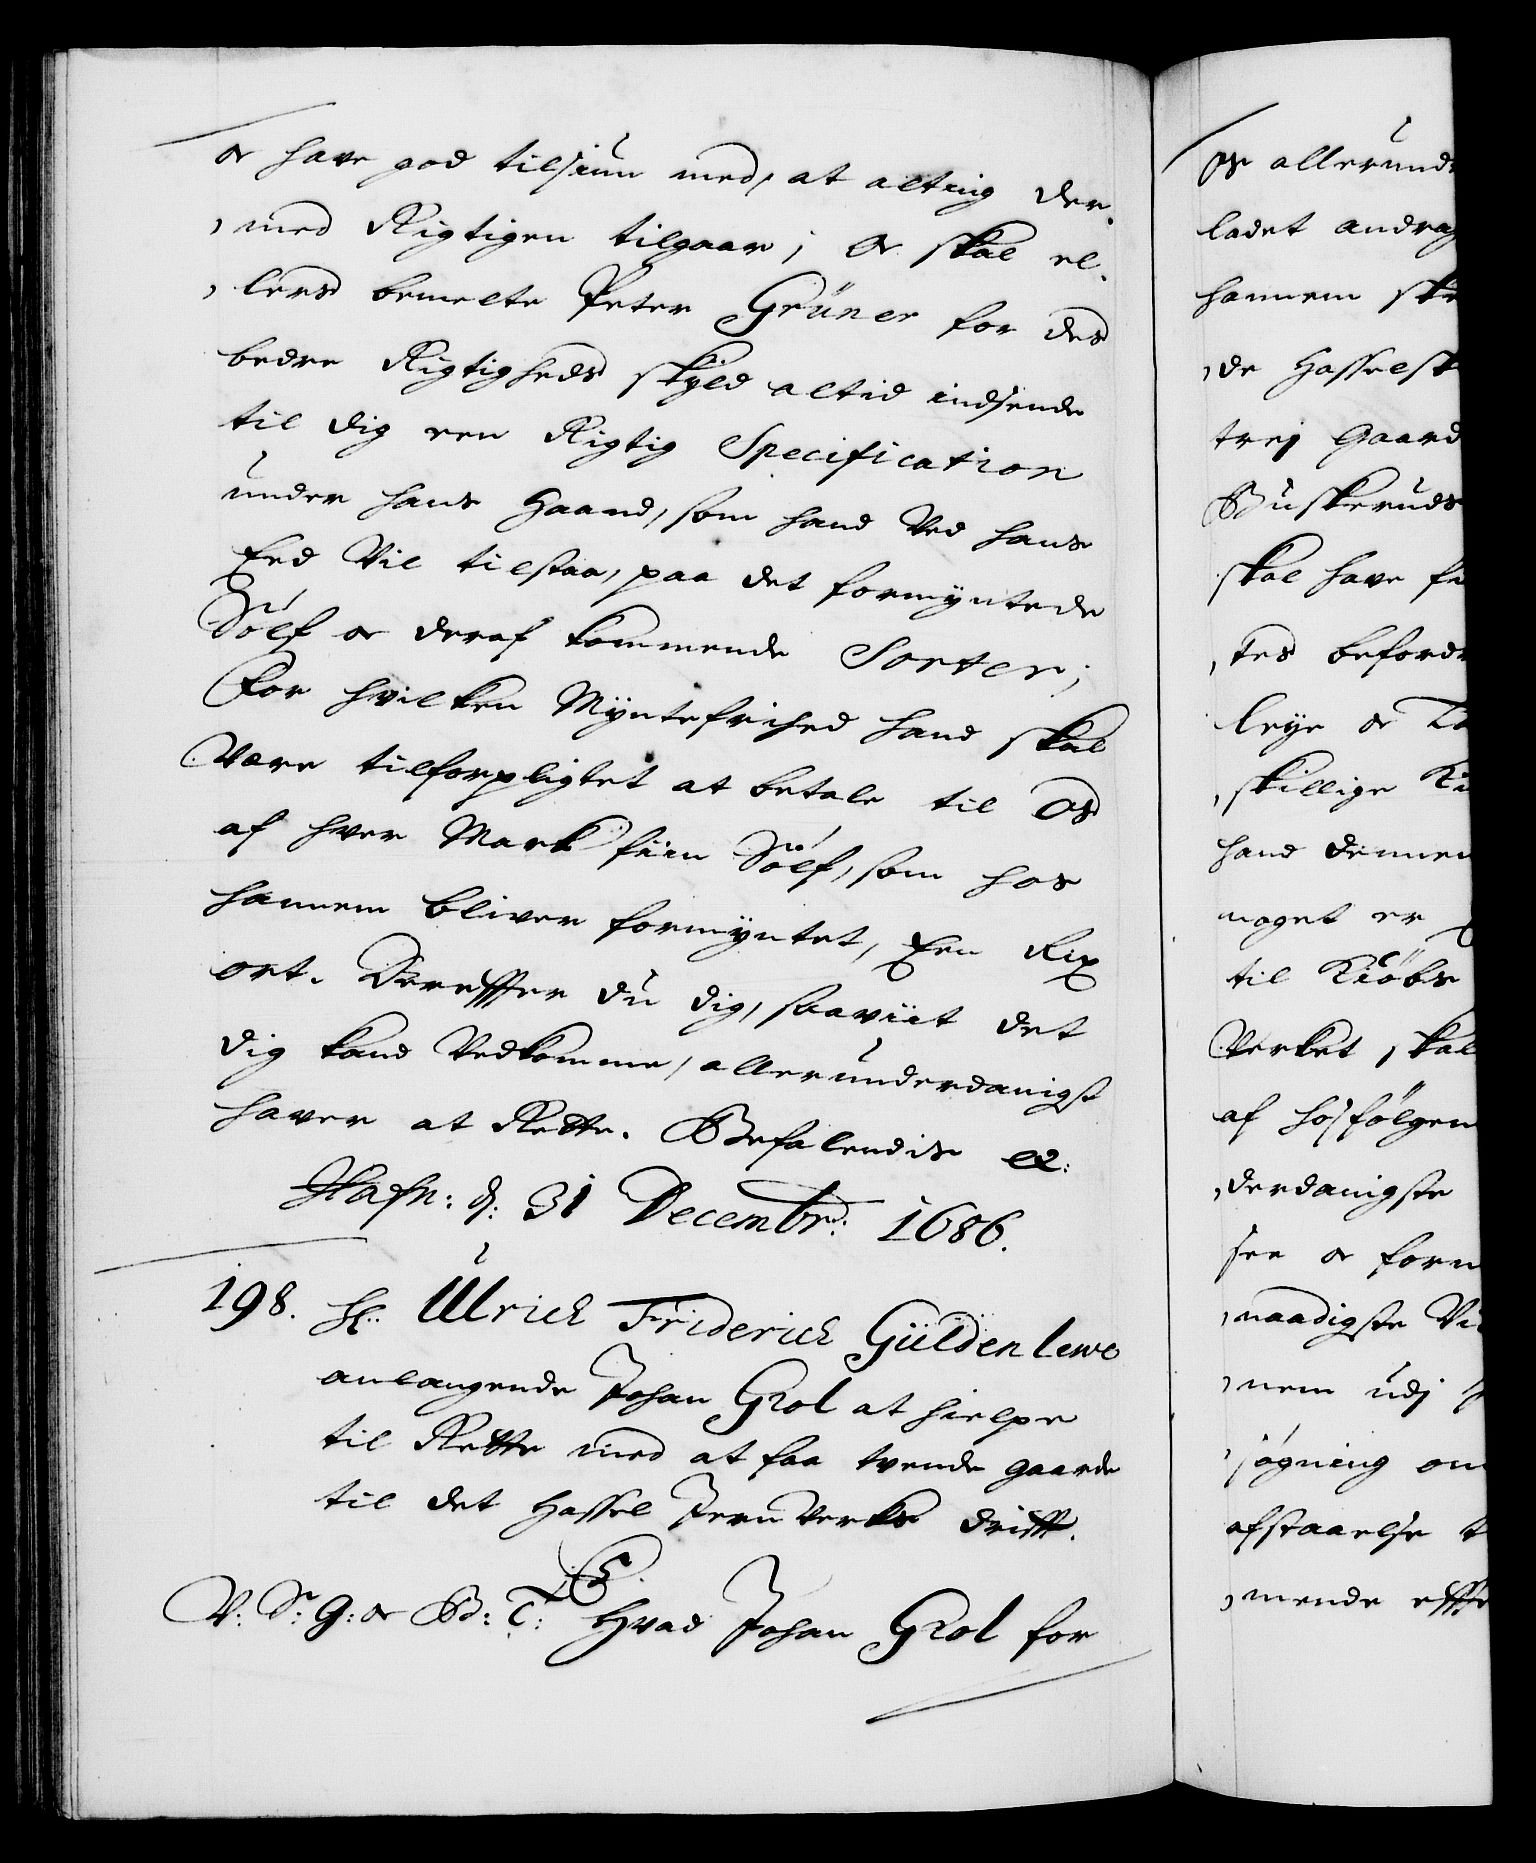 oc have god tilsiun med, at alting der,
,med Rigtigen tilgaar; oc skal el,
,lers bemelte Peter Grüner for des
bedre Rigtigheds skyld altid indsende
til dig een Rigtig Specification
under hans Haand, som hand Ved hans
Eed Vil tilstaa, paa det formyntede
Sölf oc deraf kommende Sorter;
For hvilken Myntefrihed hand skal
Være tilforpligtet at betale til Os
af hver Mark fiin Sölf, som hos
hannem bliver formyntet, Een Rix
ort. Derefter du dig, saaviit det
dig kand Vedkomme, allerunderdanigst
haver at Rette. Befalendis etc:
Hafn: d: 31 Decembr: 1686.
198. Hr: Ulrich Friderich Güldenlewe
anlangende Johan Grol at hielpe
til Rette med at faa tvende gaarde
til det Hassel JernVerks drifft.
C5.
V: Sr: G: oc B: T: Hvad Johan Grol for
Os allerund
ladet andrag
hannem ske
,de Hasselsk
trej Gaard
Buskeruds
skal have fa
,tes befordr
leye oc
,skillige
hand dennem
noget er
til Kiöbs
Verket skal
af hosfölgen
,derdanigste
see oc forn
,naadigste Vi
,nem udj
,sögning om
afstaaelse
,mende effte